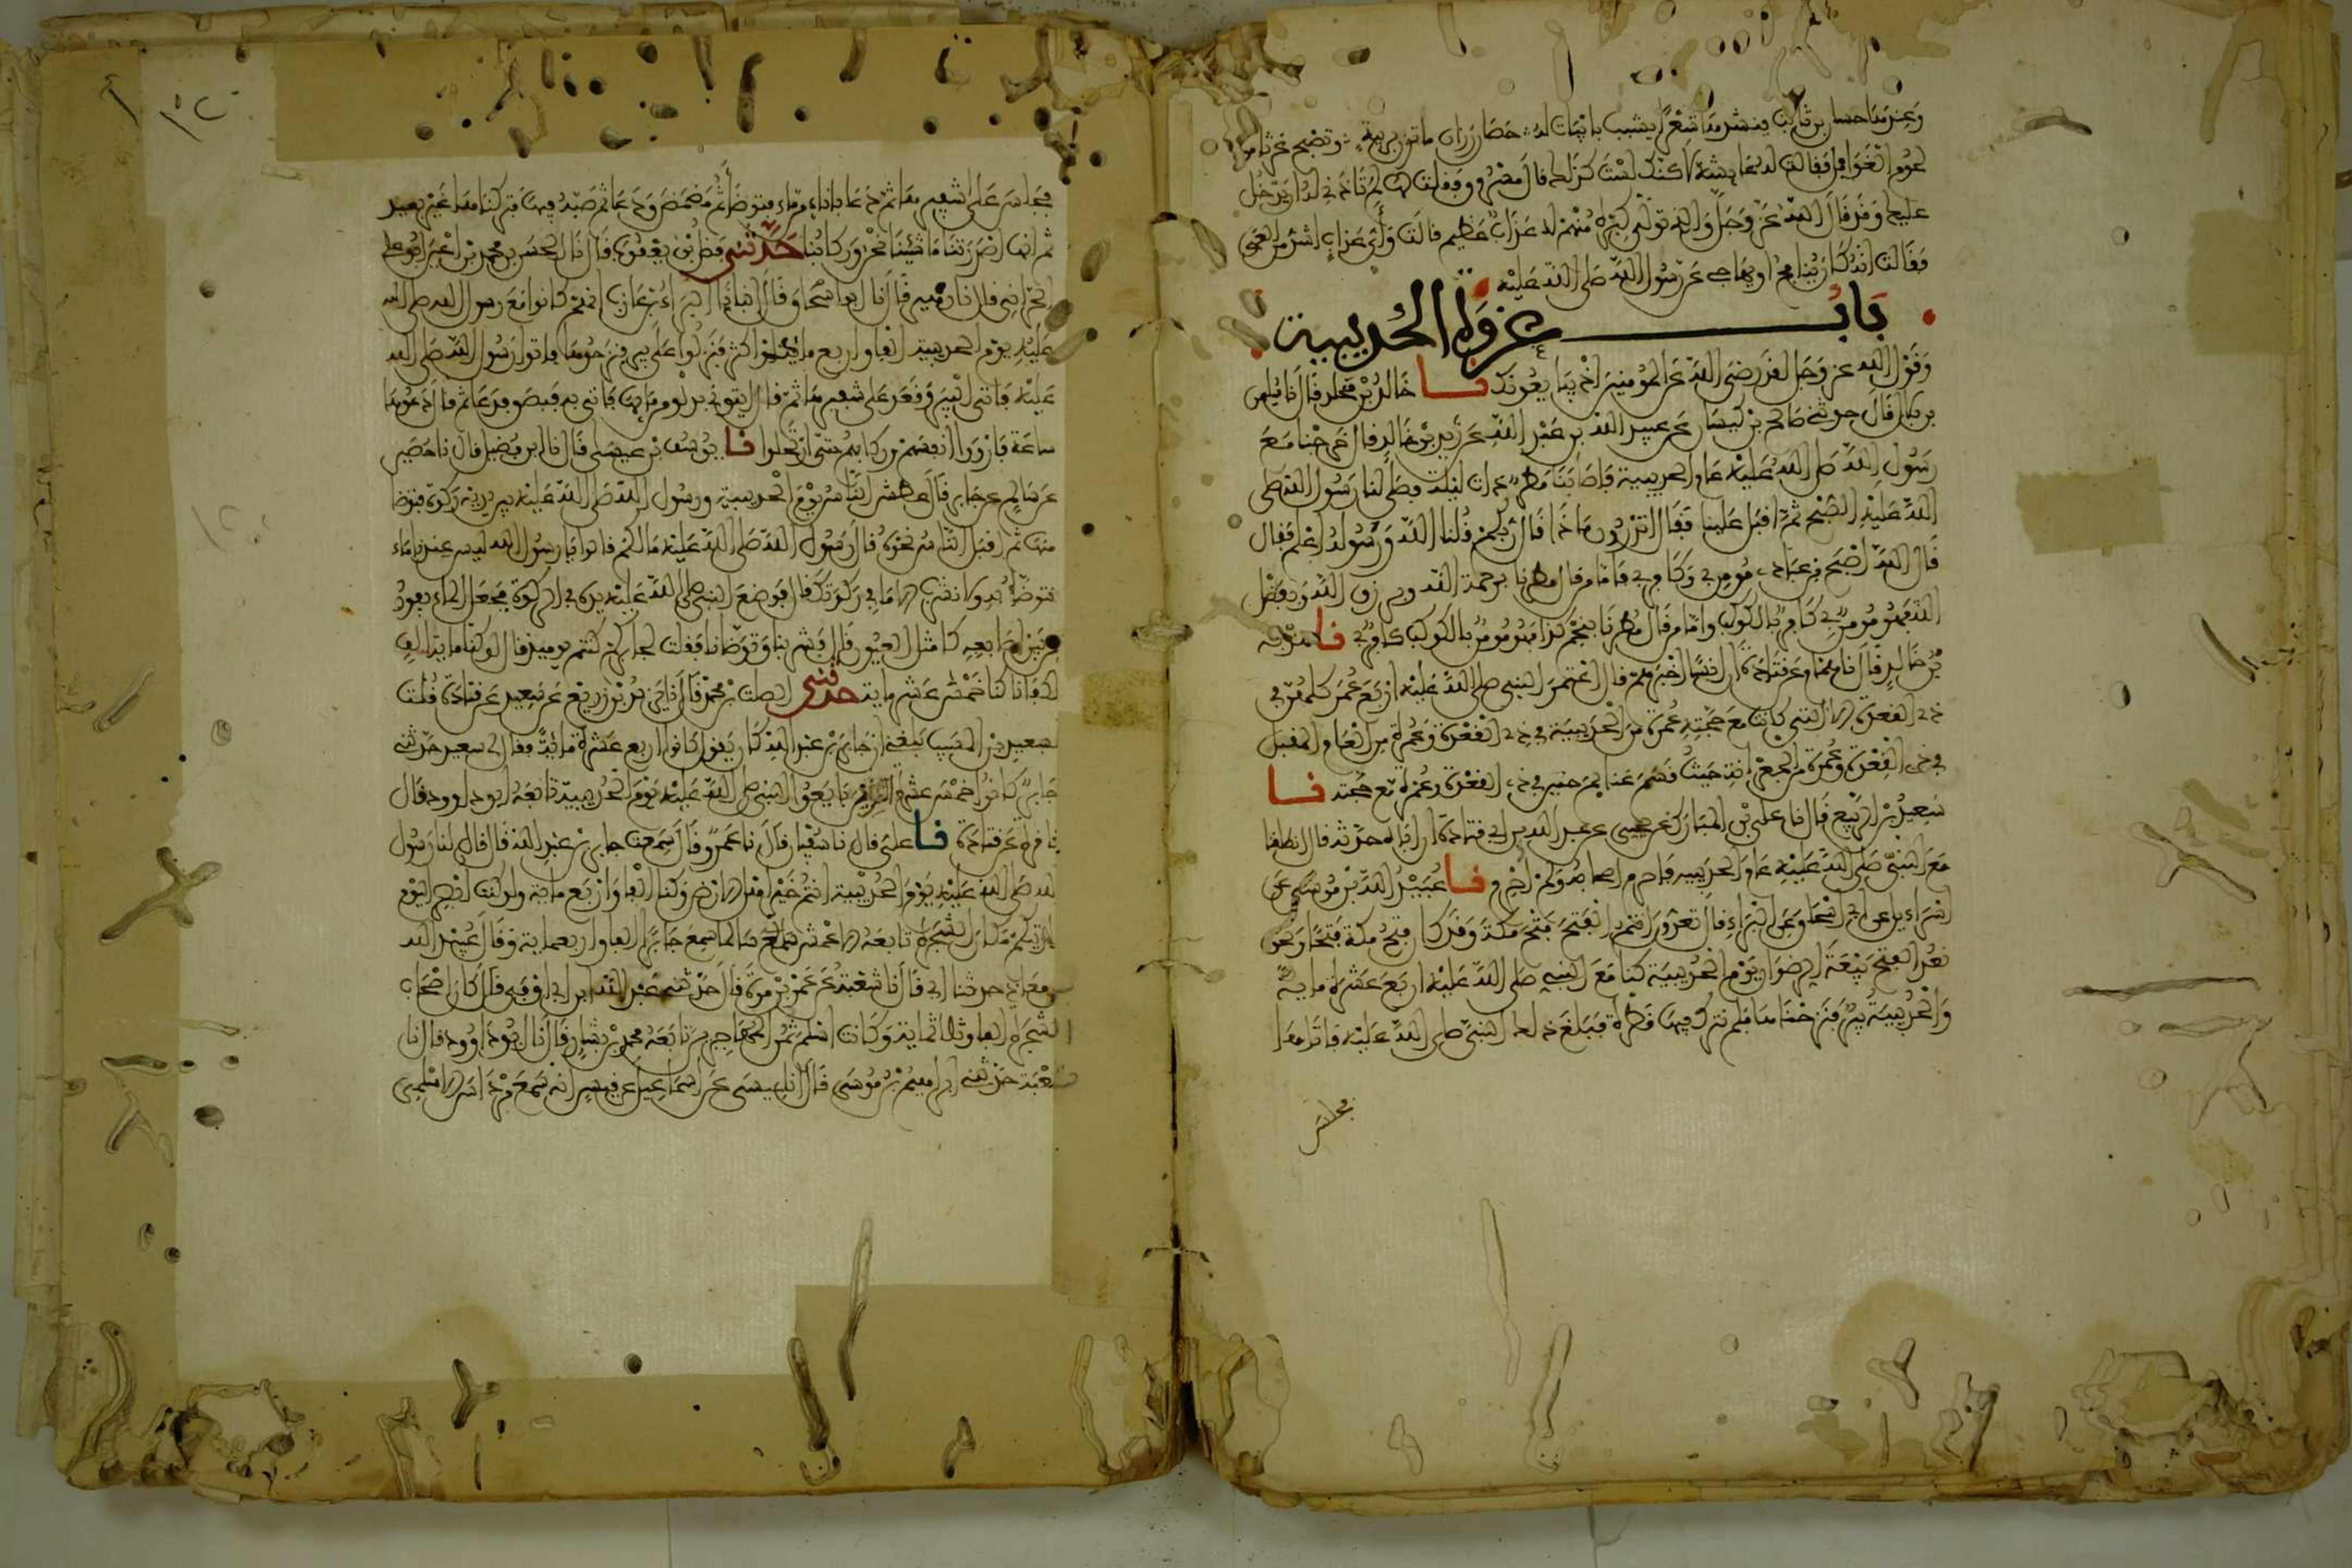 وعندها حسان بن ثابت ينشدها شعرا يشبب بابيات له حصان رزان ما تزن بريبة وتصبح غرثى من
لحوم الغوافل فقالت له عائشة لاكنك لست كذلك قال مسروق فقلت لها لم تاذني له ان يدخل
عليك وقد قال الله عز وجل والذي تولى كبره منهم له عذاب عظيم قالت واي عذاب اشد من العمى
فقالت انه كان ينافح او يهاجي عن رسول الله صلى الله عليه
باب غزوة الحديبية
وقول الله عز وجل لقد رضي الله عن المؤمنين اذ يبايعونك نا خالد بن مخلد قال نا سليمن
بن بلال قال حدثني صالح بن كيسان عن عبيد الله بن عبد الله عن زيد بن خالد قال خرجنا مع
رسول الله صلى الله عليه عام الحديبية فاصابنا مطر ذات ليلة فصلى لنا رسول الله صلى
الله عليه الصبح ثم اقبل علينا فقال اتدرون ماذا قال ربكم قلنا الله ورسوله اعلم فقال
قال الله اصبح من عبادي مومن بي وكافر بي فاما من قال مطرنا برحمة الله وبرزق الله وبفضل
الله فهو مومن بي كافر بالكوكب واما من قال مطرنا بنجم كذا فهو مومن بالكوكب كافر بي نا هدبة
بن خالد قال نا همام عن قتادة ان انسا اخبرهم قال اعتمر النبي صلى الله عليه اربع عمر كلهن في
ذي القعدة الا التي كانت مع حجته عمرة من الحديبية في ذي القعدة وعمرة من العام المقبل
في ذي القعدة وعمرة من الجعرانة حيث قسم غنايم حنين في ذي القعدة وعمرة مع حجته نا
سعيد بن الربيع قال نا علي بن المبارك عن يحيى عن عبد الله بن ابي قتادة ان اباه حدثه قال انطلقنا
مع النبي صلى الله عليه عام الحديبية فاحرم اصحابه ولم احرم نا عبيد الله بن موسى عن
اسراءيل عن ابي اسحاق عن البراء قال تعدون انتم الفتح فتح مكة وقد كان فتح مكة فتحا ونحن
نعد الفتح بيعة الرضوان يوم الحديبية كنا مع النبي صلى الله عليه اربع عشرة ماية
والحديبية بئر فنزحناها فلم نترك فيها قطرة فبلغ ذلك النبي صلى الله عليه فاتاها
فجلس
فجلس على شفيرها ثم دعا باناء من ماء فتوضا ثم مضمض ودعا ثم صبه فيها فتركناها غير بعيد
ثم انها اصدرتنا ما شئنا نحن وركابنا حدثني فضل بن يعقوب قال نا الحسن بن محمد بن اعين ابو علي
الحراني قال نا زهير قال نا ابو اسحاق قال انبانا البراء بن عازب انهم كانوا مع رسول الله صلى الله
عليه يوم الحديبية الفا واربع ماية او اكثر فنزلوا على بير فنزحوها فاتوا رسول الله صلى الله
عليه فاتى البير وقعد على شفيرها ثم قال ايتوني بدلو من مايها فاتي به فبصق فدعا ثم قال دعوها
ساعة فارووا انفسهم وركابهم حتى ارتحلوا نا يوسف بن عيسى قال نا ابن فضيل قال نا حصين
عن سالم عن جابر قال عطش الناس يوم الحديبية ورسول الله صلى الله عليه بين يديه ركوة فتوضا
منها ثم اقبل الناس نحوه قال رسول الله صلى الله عليه ما لكم قالوا يا رسول الله ليس عندنا ماء
نتوضا به ولا نشرب الا ما في ركوتك قال فوضع النبي صلى الله عليه يده في الركوة فجعل الماء يفور
من بين اصابعه كامثال العيون قال فشربنا وتوضانا فقلت لجابر كم كنتم يوميذ قال لو كنا ماية الف
لكفانا كنا خمس عشرة ماية حدثني الصلت بن محمد قال نا يزيد بن زريع عن سعيد عن قتادة قلت
لسعيد بن المسيب بلغني ان جابر بن عبد الله كان يقول كانوا اربع عشرة ماية فقال لي سعيد حدثني
جابر كانوا خمس عشرة الذين بايعوا النبي صلى الله عليه يوم الحديبية تابعه ابو داوود قال
نا قرة عن قتادة نا علي قال نا سفيان قال نا عمرو قال سمعت جابر بن عبد الله قال قال لنا رسول
الله صلى الله عليه يوم الحديبية انتم خير اهل الارض وكنا الفا واربع ماية ولو كنت ابصر اليوم
لاريتكم مكان الشجرة تابعه الاعمش سمع سالما سمع جابرا الفا واربعماية وقال عبيد الله
بن معاذ حدثنا ابي قال نا شعبة عن عمرو بن مرة قال حدثني عبد الله بن ابي اوفى قال كان اصحاب
الشجرة الفا وثلاثماية وكانت اسلم ثمن المهاجرين تابعه محمد بن بشار قال نا ابو داوود قال نا
شعبة حدثني ابراهيم بن موسى قال انا عيسى عن اسماعيل عن قيس انه سمع مرداس الاسلمي